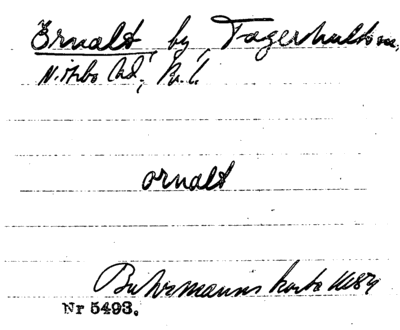 Ornalt, by, Fagerhultssn,
N. Åsbo hd,
ornalt
Buhrmanns karta 1684
Nr 5493.